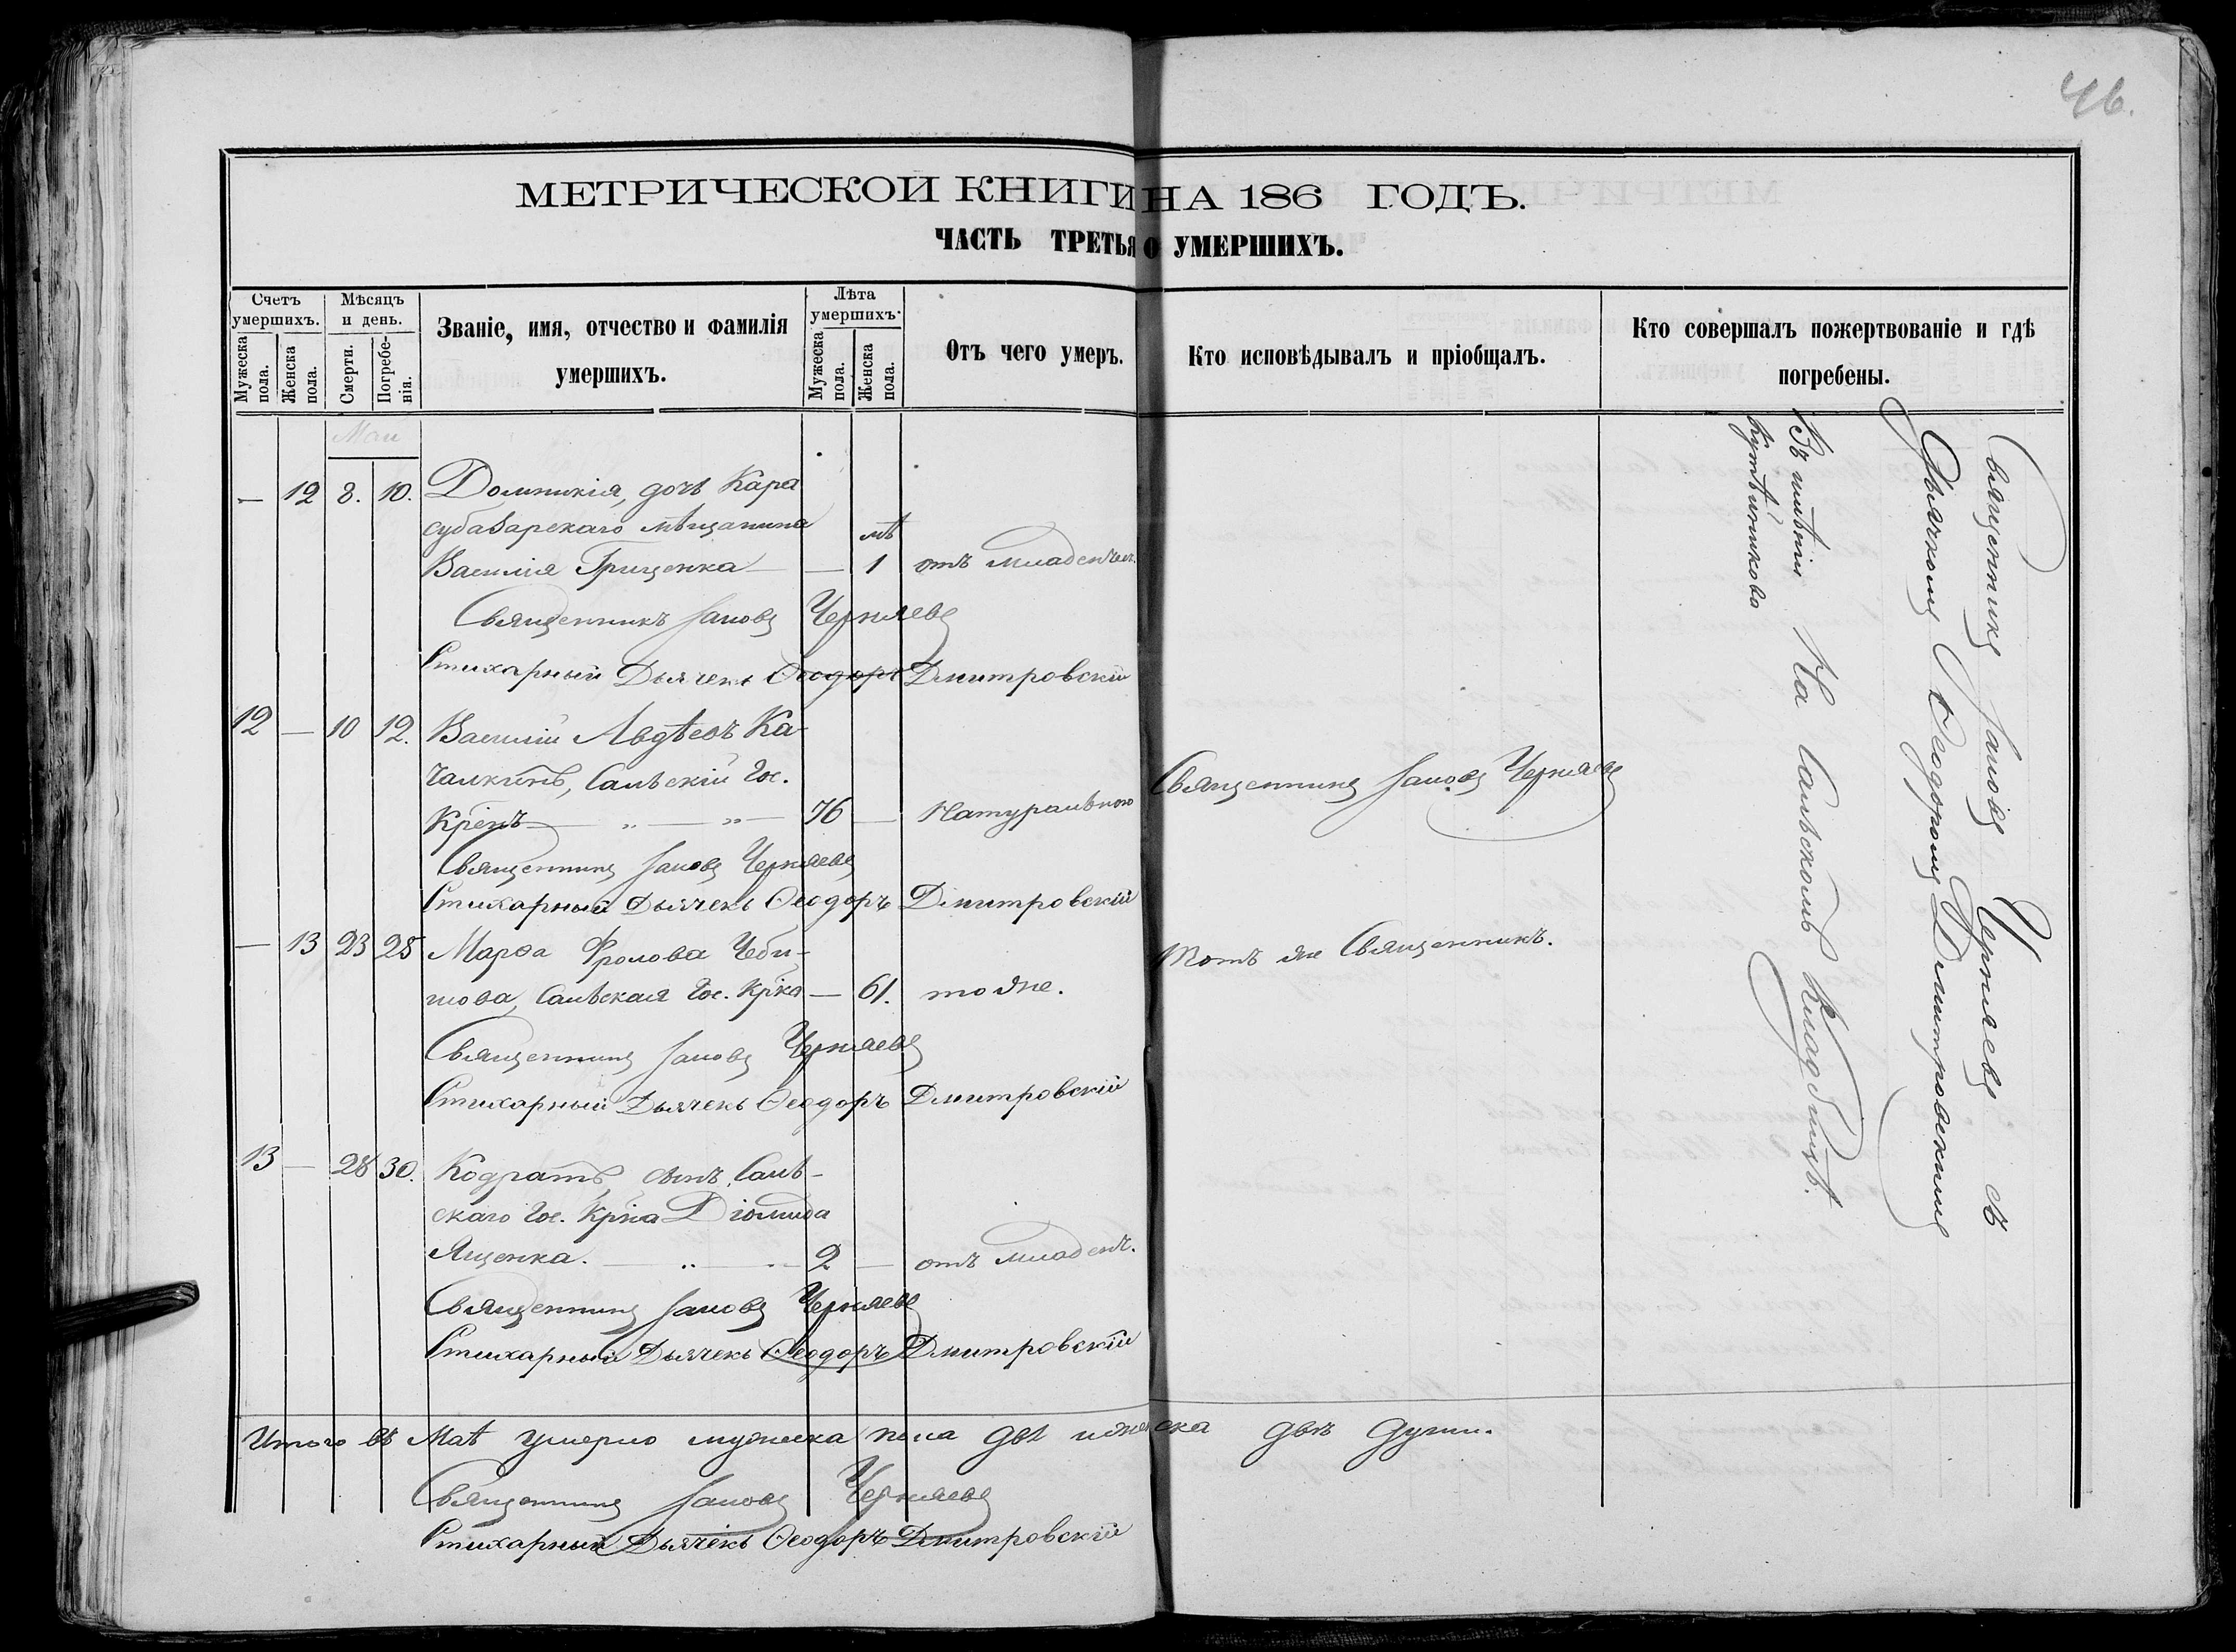 46.
МЕТРИЧЕСКОЙ КНИГИ НА 186 ГОДЪ.
ЧАСТЬ ТРЕТЬЯ О УМЕРШИХЪ.
Счетъ умершихъ.
Мужеска пола.
Женска пола.
Мѣсяцъ и день.
Смерти.
Погребенія.
Званіе, имя, отчество и фамилія
умершихъ.
Лѣта умершихъ.
Мужеска пола.
Женска пола.
Отъ чего умеръ.
Кто исповѣдывалъ и пріобщалъ.
Кто совершалъ пожертвованіе и гдѣ
погребены.
Маи
— 12 8. 10. Домникія, дочь Кара
субазарскаго мѣщанина
Василія Грищенка — — 1 отъ младенчес.
Священникъ Іаковъ Черняевъ
Стихарный Дьячекъ Ѳеодоръ Дмитровскій
12 — 10 12. Василій Авдѣевъ Ка-
чалкинъ, Сальскій Гос.
Крѣнъ — „ — „ — 76 — Натуральною
Священникъ Іаковъ Черняевъ
Священникъ Іаковъ Черняевъ
Стихарный Дьячекъ Ѳеодоръ Дмитровскій
— 13 23 25 Марѳа Фролова Чеби-
шова, Сальская Гос. Крѣка — 61. тоже.
Тотъ же Священникъ.
Священникъ Іаковъ Черняевъ
Стихарный Дьячекъ Ѳеодоръ Дмитровскій
13 — 28 30. Кодратъ, сынъ Саль-
скаго Гос. Крѣна Діомида
Ященка. — „ — 2 — отъ младенч.
Священникъ Іаковъ Черняевъ
Стихарный Дьячекъ Ѳеодоръ Дмитровскій
Священникъ Іаковъ Черняевъ съ
Дьячкомъ Ѳеодоромъ Дмитровскимъ
На Сальскомъ Кладбищѣ.
Въ имѣніи
Кутѣйникова
Итого въ Маѣ умерло мужеска пола двѣ и женска двѣ души.
Священникъ Іаковъ Черняевъ
Стихарный Дьячекъ Ѳеодоръ Дмитровскій